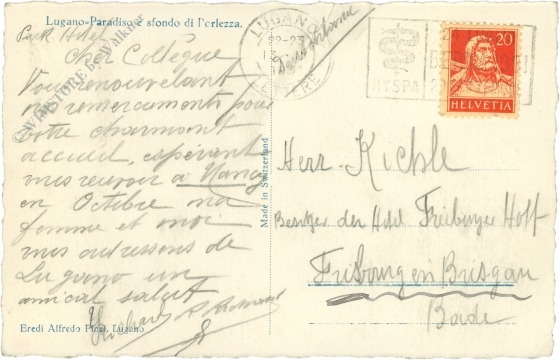 Lugano-Paradiso e sfondo di Porlezza.
Park Hotel
Cher Collègue
Vous renouvelant
nos remerciements pour
votre charmant
accueil, espérant
vous revoir à Nancy
en Octobre ma
femme et moi
vous adressons de
Lugano un
amical salut
Eredi Alfredo Finzi, Lugano
Made in Switzerland
LUGANO
22-23
LETTERE
HYSPA
20
HELVETIA
Herr Kichle
Besitzer den Hotel Freiburger Hoff
Fribourg en Brisgau
Bade